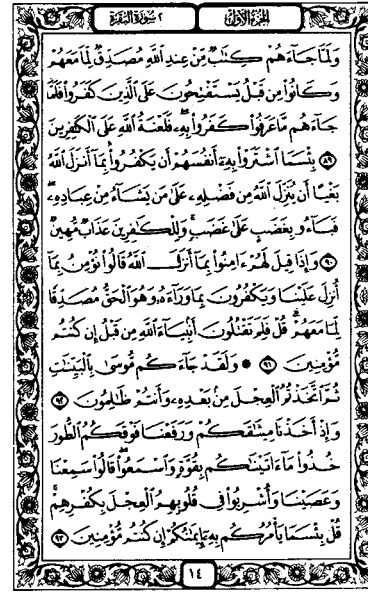 الجزء الأول ٢ سورة البقرة
وَلَمَّا جَآءَهُمْ كِتَٰبٌ مِّنْ عِندِ ٱللَّهِ مُصَدِّقٌ لِّمَا مَعَهُمْ
وَكَانُوا۟ مِن قَبْلُ يَسْتَفْتِحُونَ عَلَى ٱلَّذِينَ كَفَرُوا۟ فَلَمَّا
جَآءَهُم مَّا عَرَفُوا۟ كَفَرُوا۟ بِهِۦ فَلَعْنَةُ ٱللَّهِ عَلَى ٱلْكَٰفِرِينَ
٨٩ بِئْسَمَا ٱشْتَرَوْا۟ بِهِۦٓ أَنفُسَهُمْ أَن يَكْفُرُوا۟ بِمَآ أَنزَلَ ٱللَّهُ
بَغْيًا أَن يُنَزِّلَ ٱللَّهُ مِن فَضْلِهِۦ عَلَىٰ مَن يَشَآءُ مِنْ عِبَادِهِۦ
فَبَآءُو بِغَضَبٍ عَلَىٰ غَضَبٍ وَلِلْكَٰفِرِينَ عَذَابٌ مُّهِينٌ
٩٠ وَإِذَا قِيلَ لَهُمْ ءَامِنُوا۟ بِمَآ أَنزَلَ ٱللَّهُ قَالُوا۟ نُؤْمِنُ بِمَآ
أُنزِلَ عَلَيْنَا وَيَكْفُرُونَ بِمَا وَرَآءَهُۥ وَهُوَ ٱلْحَقُّ مُصَدِّقًا
لِّمَا مَعَهُمْ قُلْ فَلِمَ تَقْتُلُونَ أَنۢبِيَآءَ ٱللَّهِ مِن قَبْلُ إِن كُنتُم
مُّؤْمِنِينَ ٩١ ۞ وَلَقَدْ جَآءَكُم مُّوسَىٰ بِٱلْبَيِّنَٰتِ
ثُمَّ ٱتَّخَذْتُمُ ٱلْعِجْلَ مِنۢ بَعْدِهِۦ وَأَنتُمْ ظَٰلِمُونَ ٩٢
وَإِذْ أَخَذْنَا مِيثَٰقَكُمْ وَرَفَعْنَا فَوْقَكُمُ ٱلطُّورَ
خُذُوا۟ مَآ ءَاتَيْنَٰكُم بِقُوَّةٍ وَٱسْمَعُوا۟ قَالُوا۟ سَمِعْنَا
وَعَصَيْنَا وَأُشْرِبُوا۟ فِى قُلُوبِهِمُ ٱلْعِجْلَ بِكُفْرِهِمْ
قُلْ بِئْسَمَا يَأْمُرُكُم بِهِۦٓ إِيمَٰنُكُمْ إِن كُنتُم مُّؤْمِنِينَ ٩٣
١٤